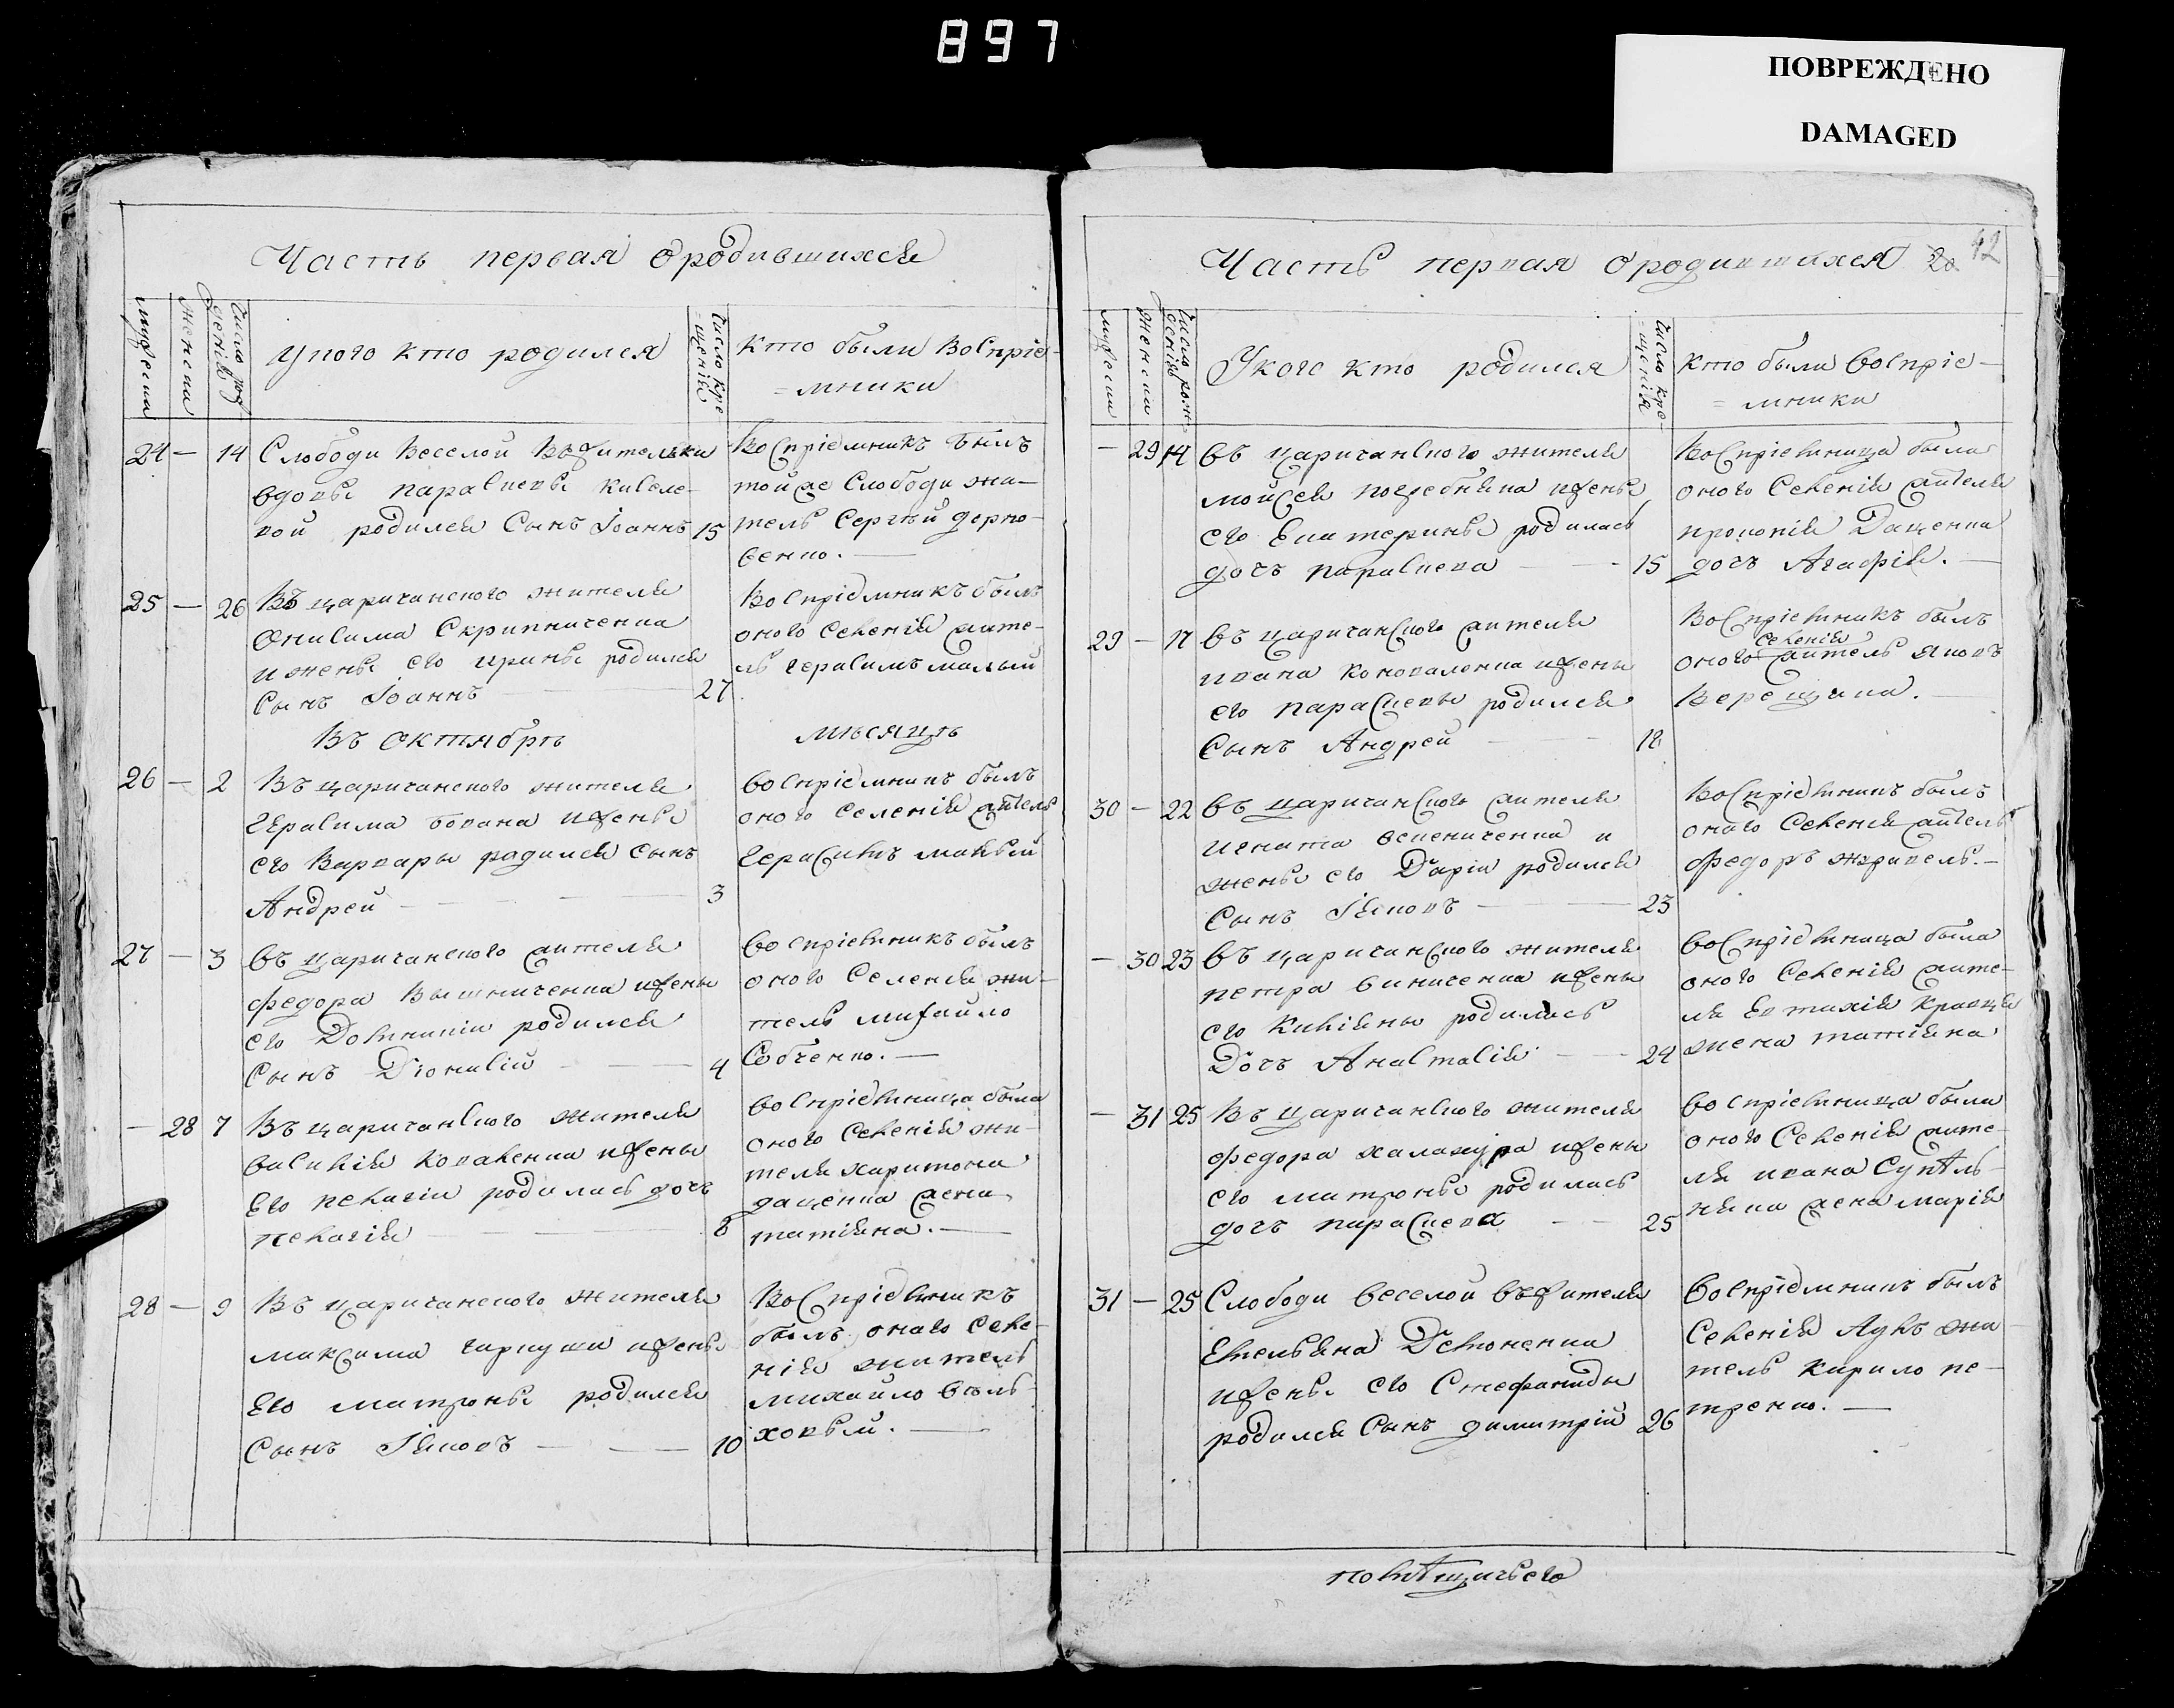 897
ПОВРЕЖДЕНО
DAMAGED
Часть первая о родившихся
мужеска
женска
Число рож
денія
У кого кто родился
Число кре
щенія
кто были Воспріе-
=мники
24 — 14 Слободи Веселой Вжителки
вдовы параскевы
родился Сынъ Іоаннъ 15
Воспріемникъ былъ
тойже Слободи жи-
тель Сергѣй
25 — 26 Въ царичанского жителя
Онисима Скрипниченка
и жены его ирины родился
Сынъ Іоаннъ 27
Воспріемникъ былъ
оного селенія жите-
ль герасимъ малый
Въ октябрѣ мѣсяцѣ
26 — 2 Въ царичанского жителя
герасима бована ижены
его Варвары родился сынъ
Андрей 3
воспріемникъ былъ
оного селенія житель
герасимъ малый
27 — 3 въ царичанского жителя
федора Вышниченка ижены
его Домникіи родился
Сынъ Діонисій 4
воспріемникъ былъ
оного Селенія жи-
тель михайло
Собченко. —
— 28 7 Въ царичанского жителя
василія коваленка ижены
Его пелагіи родилась дочъ
пелагія 8
воспріемница была
оного селенія жи-
теля харитона
даценка жена
татіяна. —
28 — 9 Въ царичанского жителя
максима ижены
Его матроны родился
Сынъ Іяковъ 10
Воспріемникъ
былъ оного селе-
нія житель
михайло воль-
ховый. —
Часть первая о родившихся 20 42
мужеска
женска
Число рож
денія
У кого кто родился
Число кре-
щенія
кто были воспріе-
= мники
— 29 14 въ царичанского жителя
мойсея погребняка ижены
его Екатерины родилась
дочъ параскева 15
Воспріемница была
оного селенія жителя
прокопія Даценка
дочъ Агафія. —
29 — 17 въ царичанского жителя
ивана коноваленка ижены
его параскевы родился
Сынъ Андрей 18
Воспріемникъ былъ
селенія
оного житель яковъ
Верещака.
30 — 22 въ царичанского жителя
игната и
жены его Даріи родился
Сынъ Іяковъ 23
Воспріемникъ былъ
оного селенія житель
федоръ
— 30 23 въ царичанского жителя
петра виниченка ижены
его киліяны родилась
Дочъ Анастасія 24
воспріемница была
оного селенія жите-
ля Евтихія кравця
жена татіяна
— 31 25 Въ царичанского жителя
федора ижены
его матроны родилась
дочъ параскева 25
воспріемница была
оного селенія жите-
ля ивана
жена марія
31 — 25 Слободи веселой вжителя
Емельяна Демоненка
ижены его Стефаниды
родился Сынъ димитрій 26
воспріемникъ былъ
селенія жи-
тель кирило пе-
тренко. —